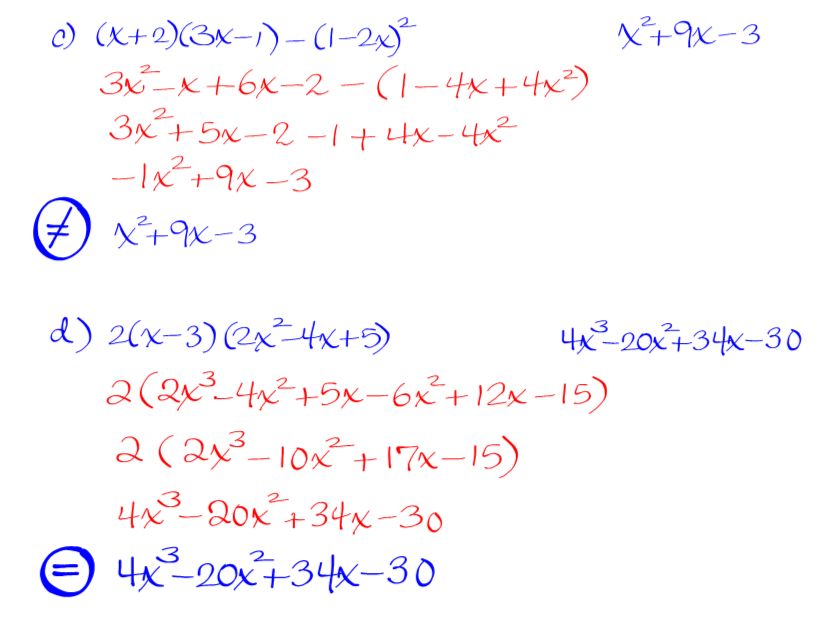 c) (x+2)(3x-1)-(1-2x)² x²+9x-3
3x²-x+6x-2-(1-4x+4x²)
3x²+5x-2-1+4x-4x²
-1x²+9x-3
≠ x²+9x-3
d) 2(x-3)(2x²-4x+5) 4x³-20x²+34x-30
2(2x³-4x²+5x-6x²+12x-15)
2(2x³-10x²+17x-15)
4x³-20x²+34x-30
= 4x³-20x²+34x-30